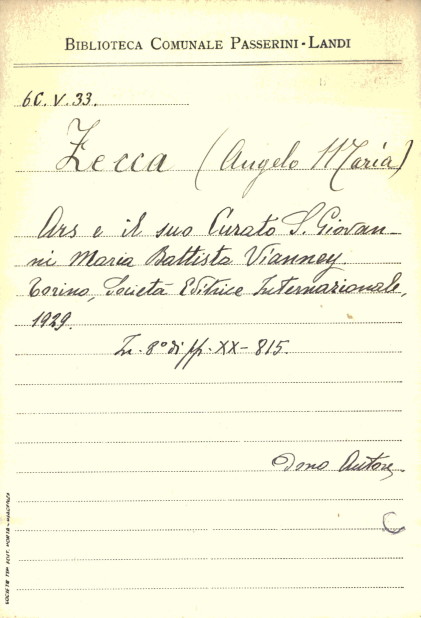 BIBLIOTECA COMUNALE PASSERINI-LANDI
6C.V.33.
Zecca (Angelo Maria)
Ars e il suo Curato S. Giovan-
ni Maria Battista Vianney
Torino, Società Editrice Internazionale,
1929.
In-8° di pp. XX-815.
Dono Autore